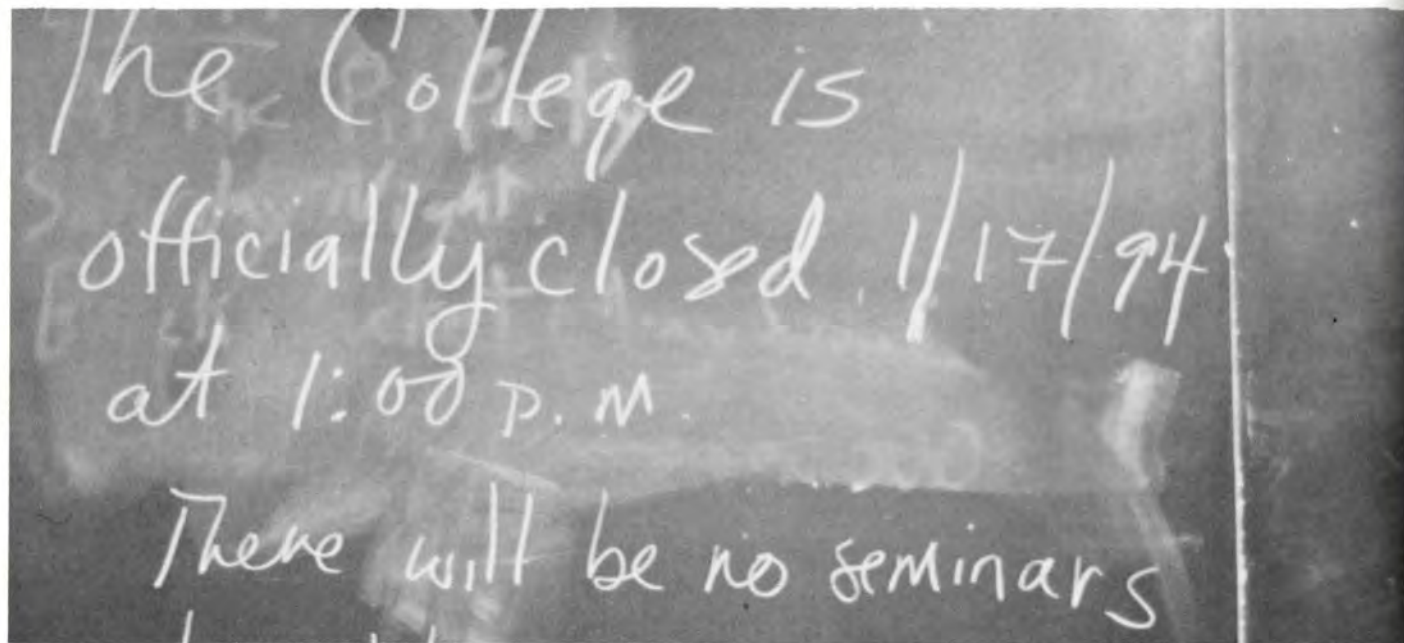 The College is
officially closed 1/17/94
at 1:00 p.m.
There will be no seminars